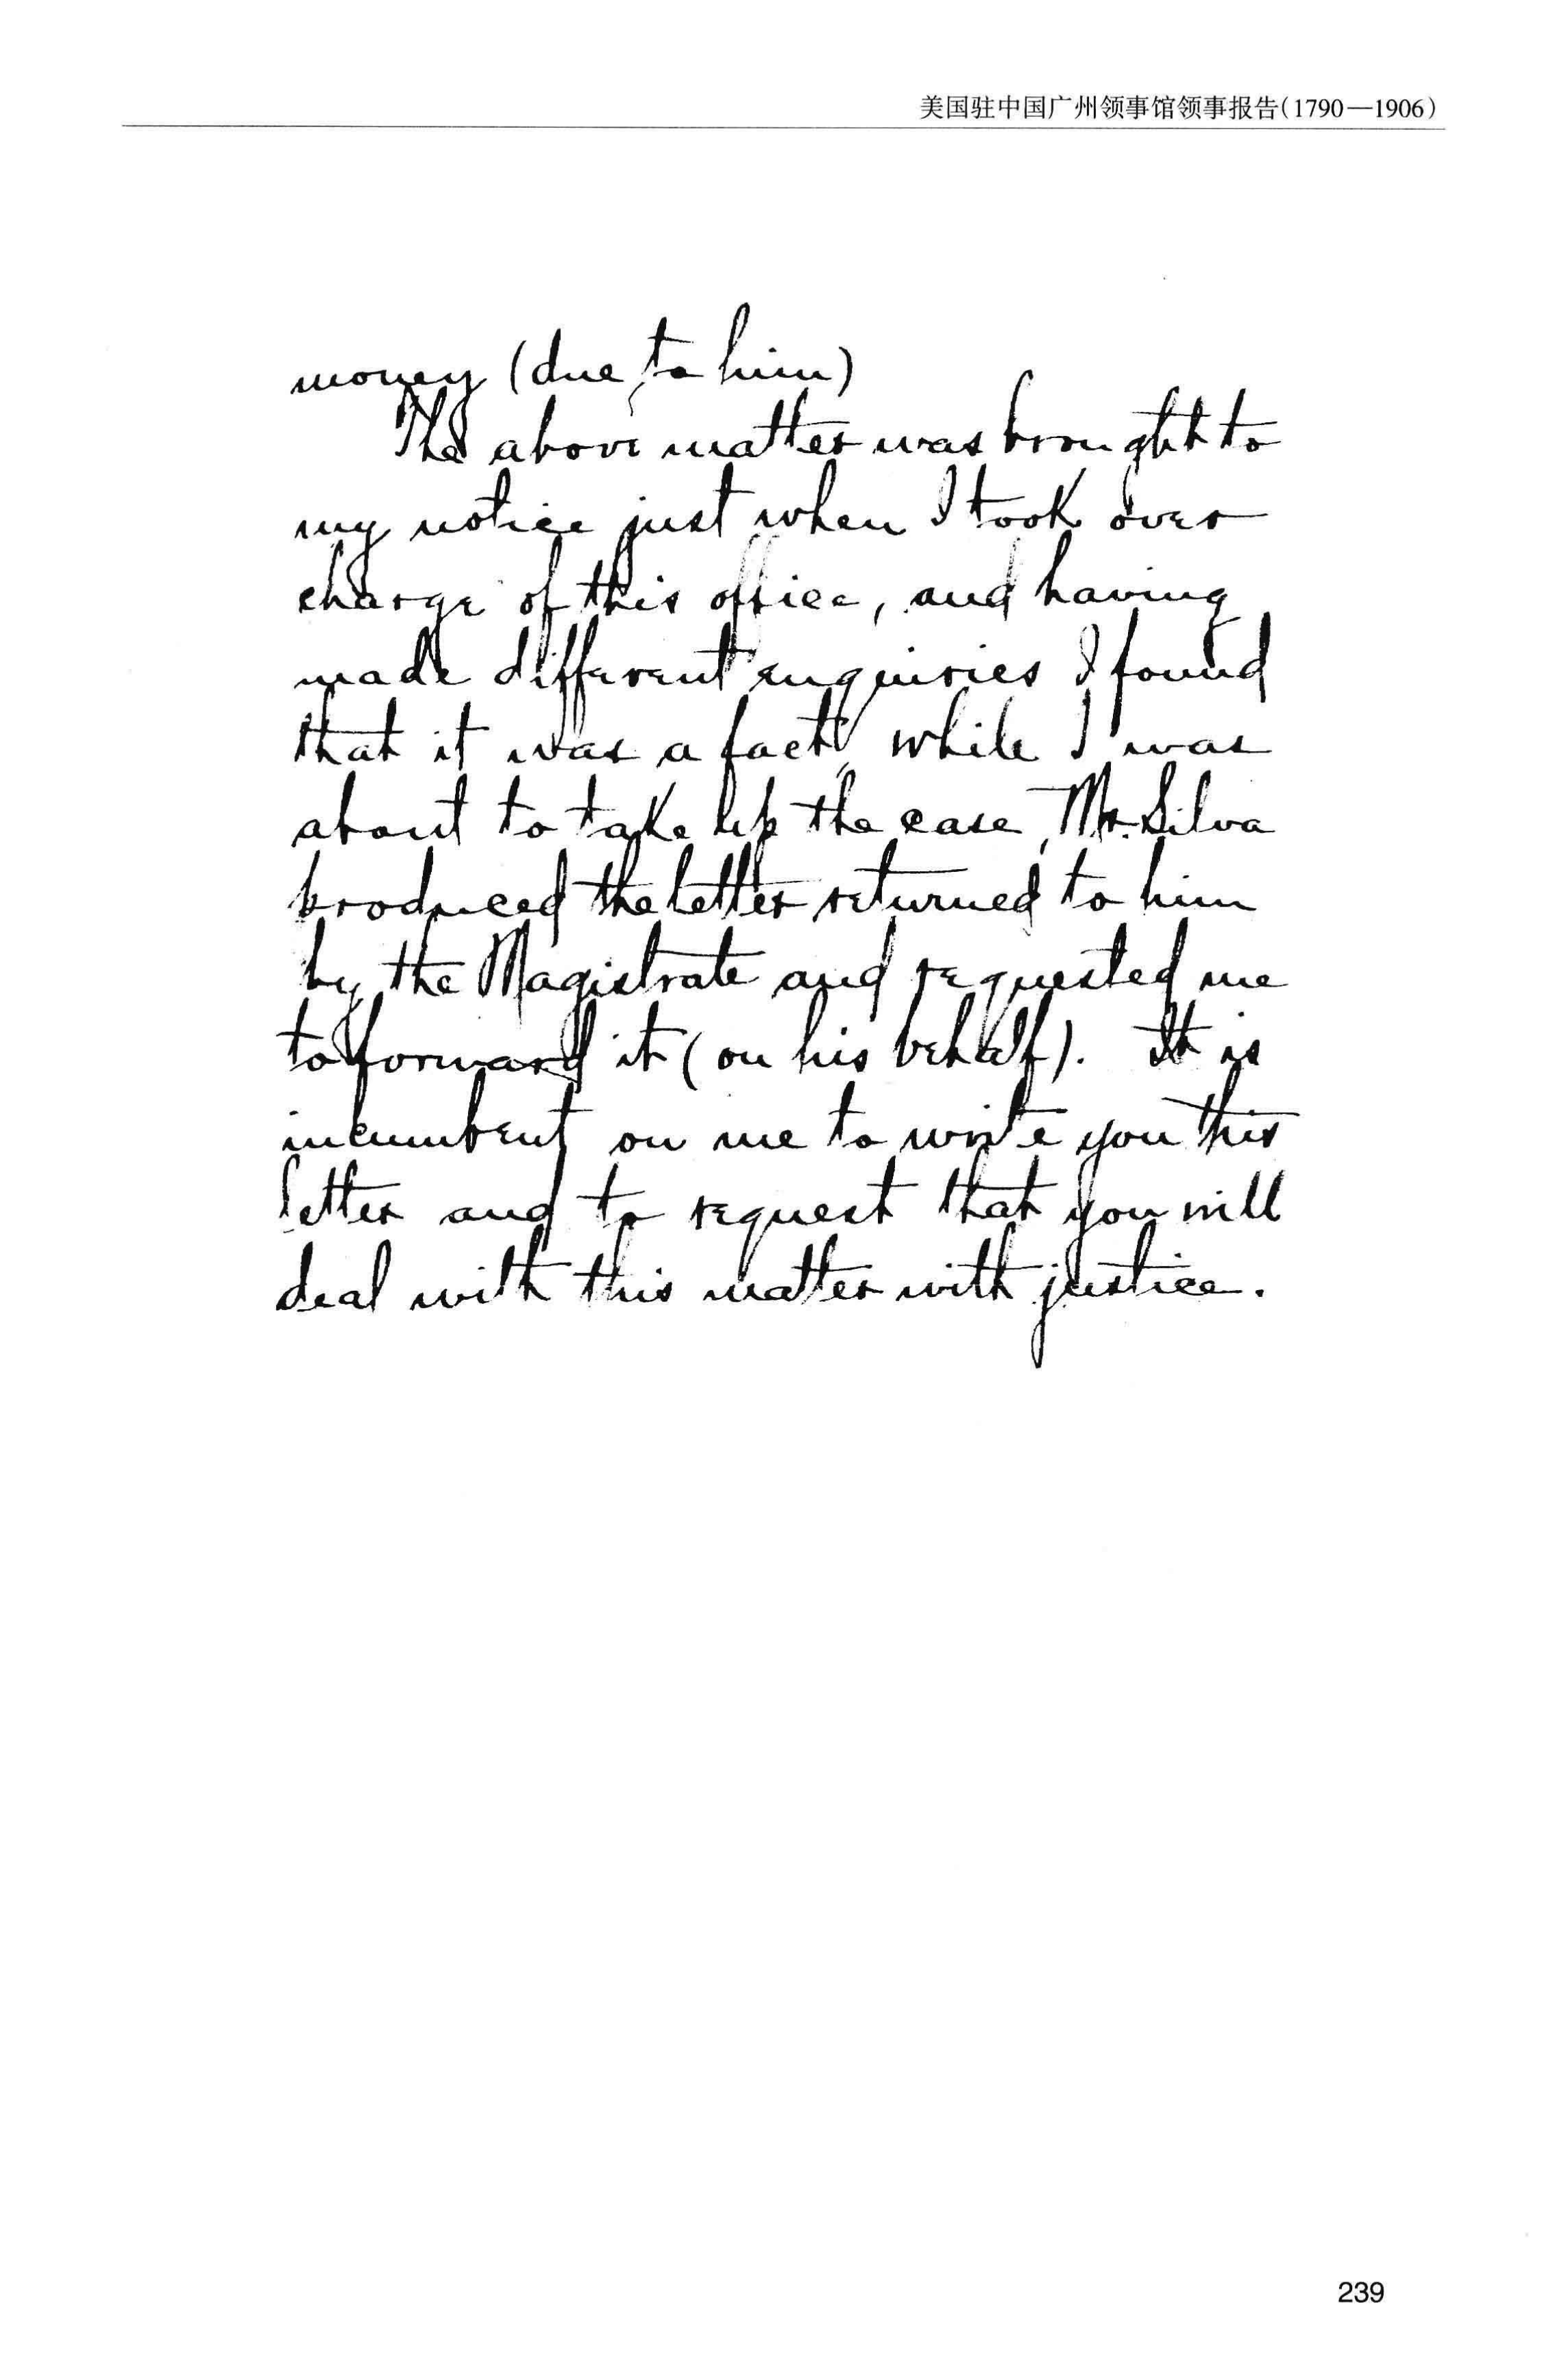 美国驻中国广州领事馆领事报告(1790—1906)
money (due to him)
The above matter was brought to
my notice just when I took over
charge of this office, and having
made different enquiries I found
that it was a fact, while I was
about to take up the case, Mr. Silva
produced the letter returned to him
by the Magistrate and requested me
to forward it (on his behalf). It is
incumbent on me to write you this
letter and to request that you will
deal with this matter with justice.
239